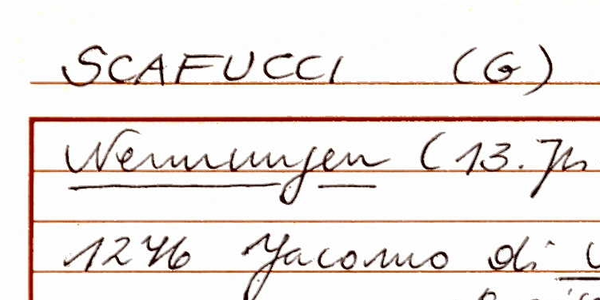 SCAFUCCI (G)
Nennungen (13. Jh
1276 Jacomo di